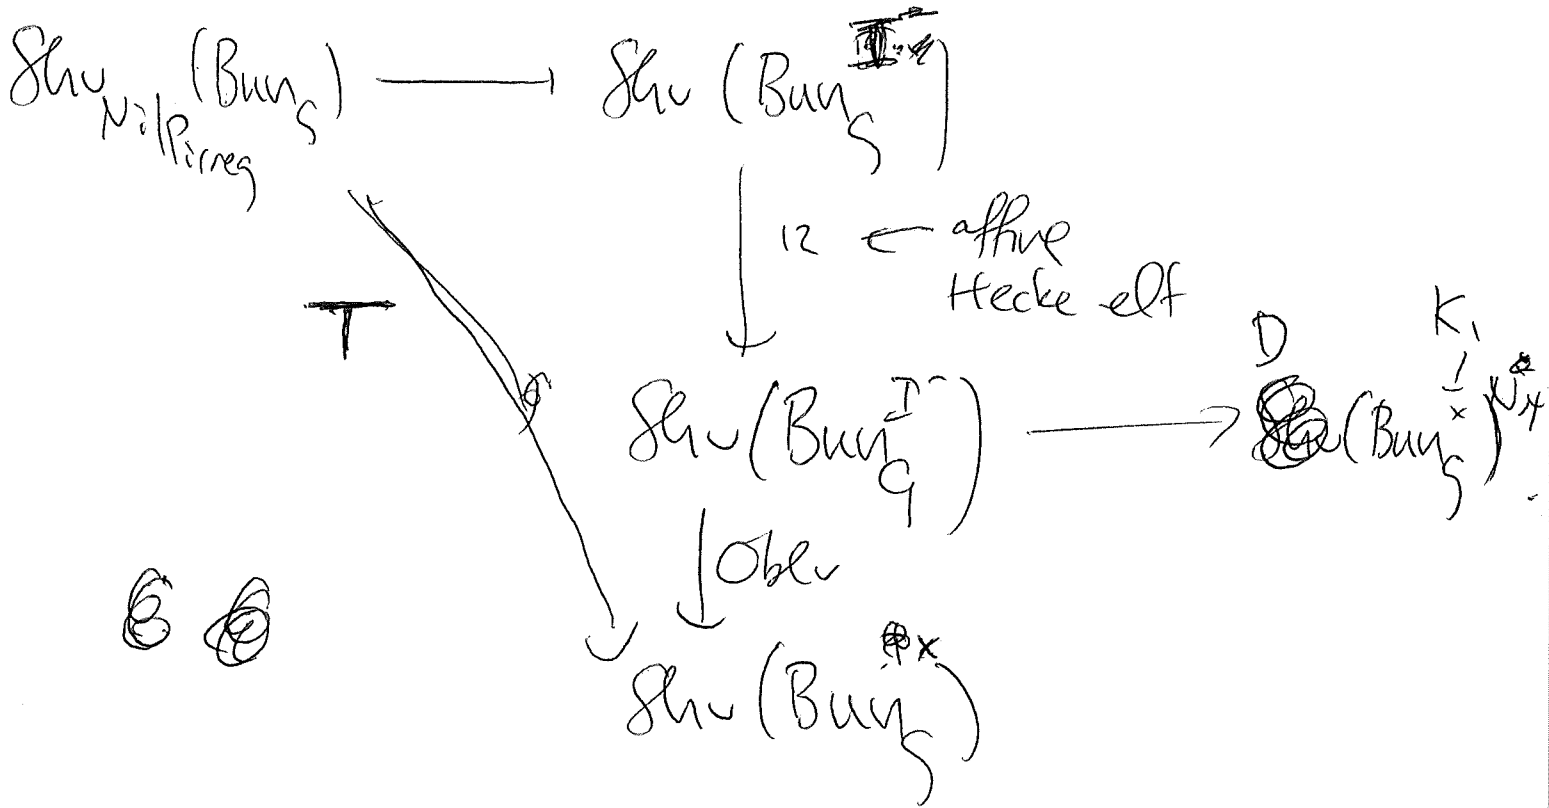 Shv_{Nilp, irreg}(Bun_G) → Shv(Bun_G^{I})
↓ ≀ ← affine
Hecke elt
T
D K_1
Shv(Bun_G^{I^-}) → (Bun_G^{x})
↓ Oblv
Shv(Bun_G^{x})